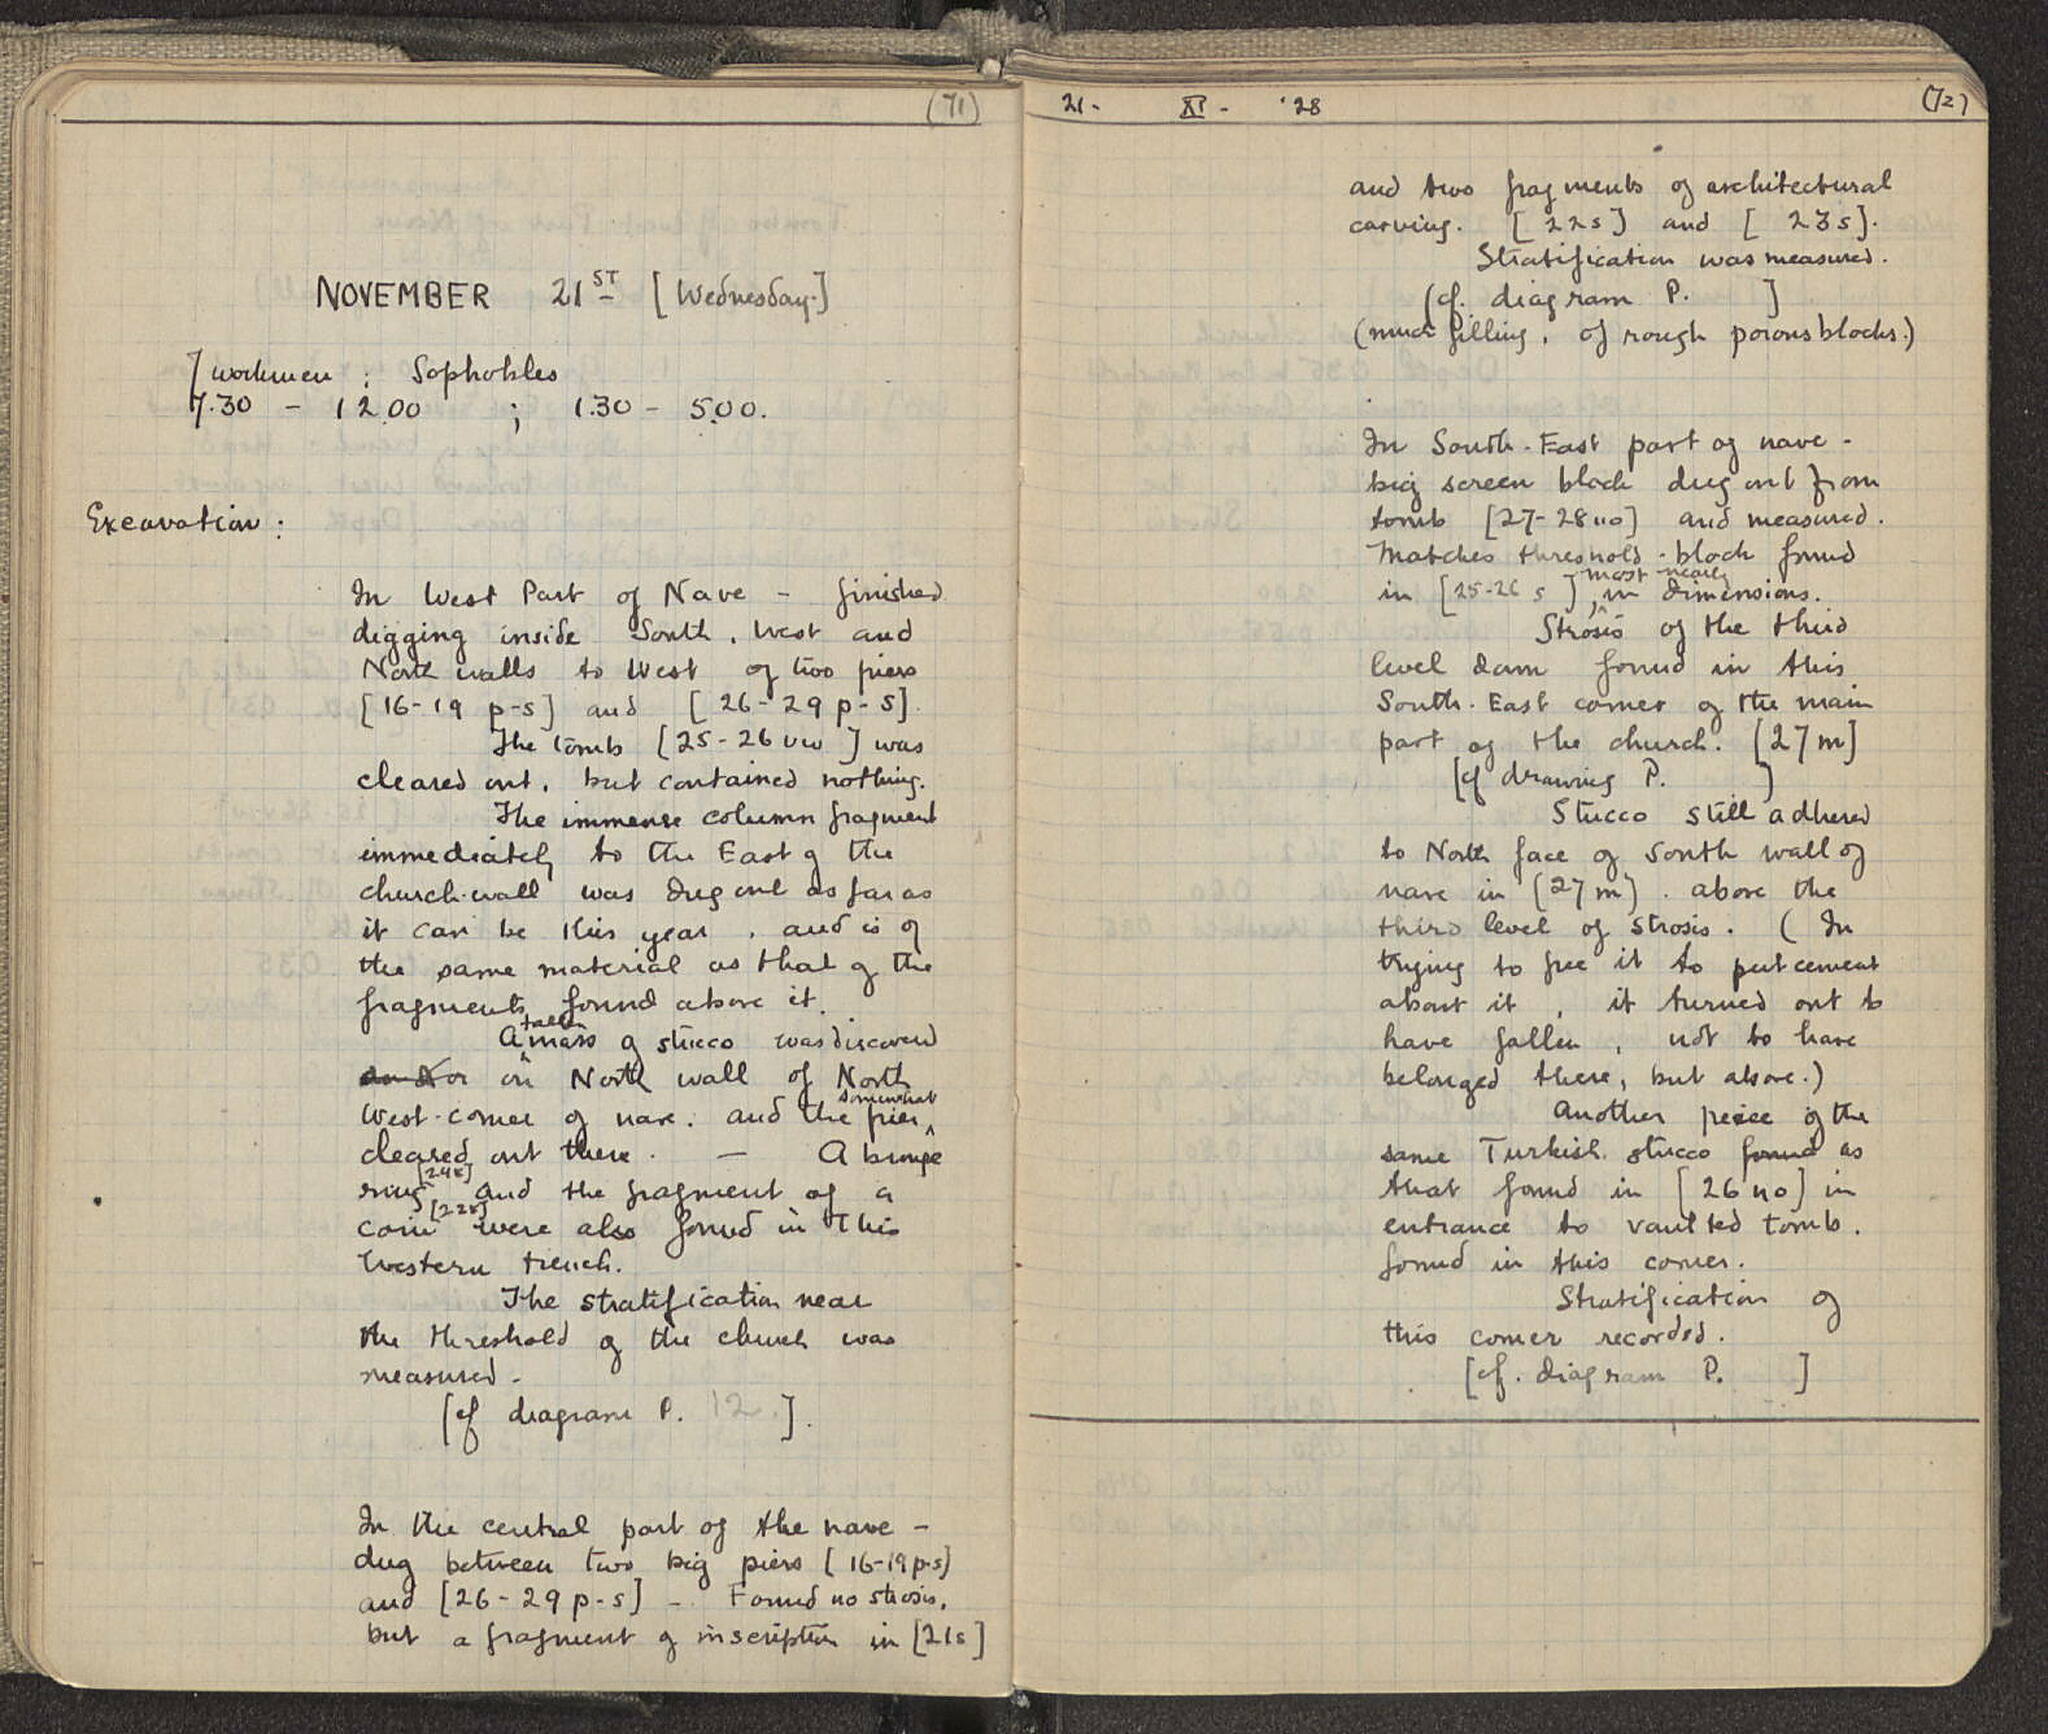 (71)
NOVEMBER 21ST [Wednesday.]
7 workmen ; Sophokles
7.30 - 12.00 ; 1.30 - 5.00.
Excavation :
In West Part of Nave - finished
digging inside South, West and
North walls to West of two piers
[16-19 p-s] and [26-29 p-s].
The tomb [25-26 vw] was
cleared out, but contained nothing.
The immense column fragment
immediately to the East of the
church-wall was dug out as far as
it can be this year, and is of
the same material as that of the
fragments found above it.
A fallen mass of stucco was discovered
on North wall of North
West-corner of nave. and the pier somewhat
cleared out there. — A bronze
ring [24s] and the fragment of a
coin [22s] were also found in this
Western trench.
The stratification near
the threshold of the church was
measured -
[cf diagram P. 12.].
In the central part of the nave -
dug between two big piers [16-19 p-s]
and [26-29 p-s] - Found no strosis,
but a fragment of inscription in [21s]
21- XI - '28 (72)
and two fragments of architectural
carving. [22s] and [23s].
Stratification was measured.
[cf. diagram P. ]
(much filling, of rough porous blocks.)
In South-East part of nave -
big screen block dug out from
tomb [27-28 no] and measured.
Matches threshold-block found
in [25-26 s], most nearly in dimensions.
Strosis of the third
level down found in this
South-East corner of the main
part of the church. [27m]
[cf drawing P. ]
Stucco still adhered
to North face of South wall of
nave in [27m]. above the
third level of strosis. (In
trying to free it to put cement
about it, it turned out to
have fallen, not to have
belonged there, but above.)
Another peice of the
same Turkish stucco found as
that found in [26 no] in
entrance to vaulted tomb.
found in this corner.
Stratification of
this corner recorded.
[cf. diagram P. ]